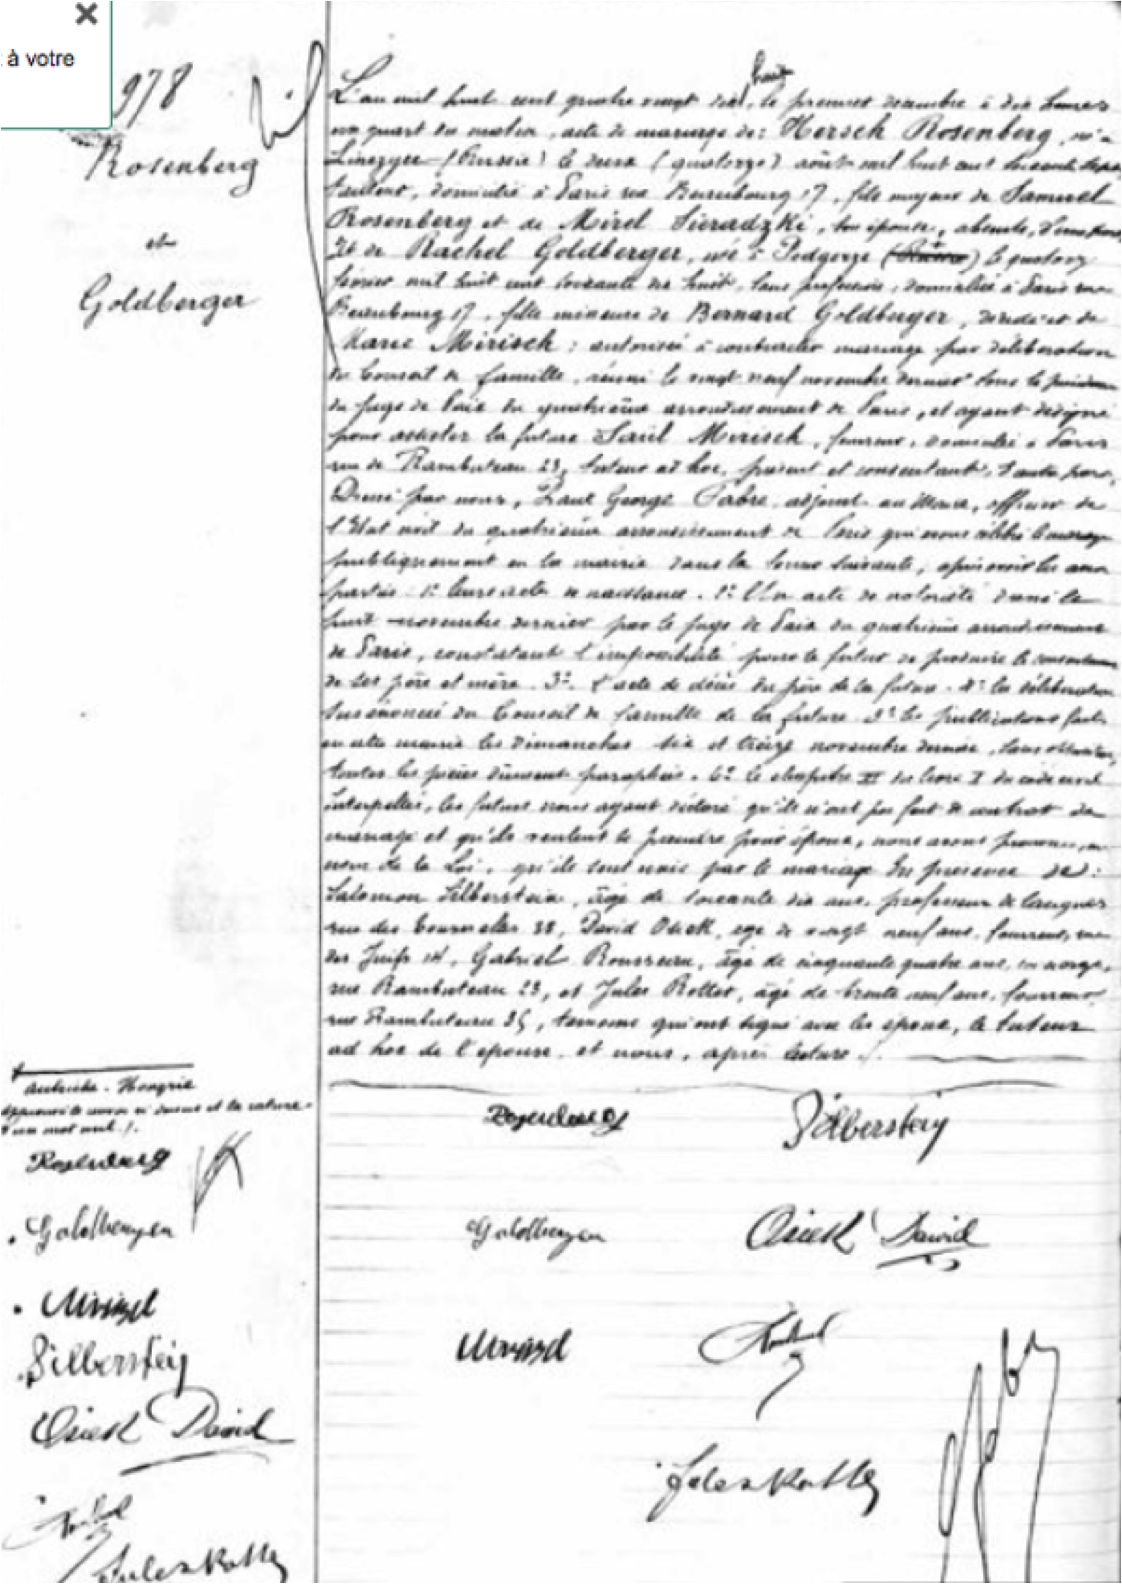 à votre
978
Rosenberg
et
Goldberger
L'an mil huit cent quatre vingt dix huit, le premier décembre à dix heures
un quart du matin, acte de mariage de: Hersch Rosenberg, né à
(Russie) le deux (quatorze) août mil huit cent soixante
domicilié à Paris rue Beaubourg 17, fils majeur de Samuel
Rosenberg et de Mirel Sieradzki, son épouse, absents, d'une part
Et de Rachel Goldberger, née à Podgorze (Russie) le quatorze
février mil huit cent soixante dix huit, sans profession, domiciliée à Paris rue
Beaubourg 17, fille mineure de Bernard Goldberger, décédé et de
Marie Mirisch: autorisée à contracter mariage par délibération
du Conseil de famille, réuni le vingt neuf novembre dernier sous la
du Juge de Paix du quatrième arrondissement de Paris, et ayant désigné
pour assister la future Saül Mirisch, fourreur, domicilié à Paris
rue de Rambuteau 23, tuteur ad hoc, présent et consentant, d'autre part,
Dressé par nous, Paul George Fabre, adjoint au Maire, officier de
l'Etat civil du quatrième arrondissement de Paris qui avons célébré le mariage
publiquement en la mairie dans la forme suivante, après avoir lu aux
parties: 1° leurs actes de naissance. 2° Un acte de notoriété dressé le
huit novembre dernier par le Juge de Paix du quatrième arrondissement
de Paris, constatant l'impossibilité pour le futur de produire le consentement
de ses père et mère. 3° l'acte de décès du père de la future. 4° la délibération
susénoncée du Conseil de famille de la future 5° les publications faites
en cette mairie les dimanches six et treize novembre dernier, sans opposition,
toutes les pièces dûment paraphées. 6° le chapitre VI du livre I du code civil
interpellés, les futurs nous ayant déclaré qu'ils n'ont pas fait de contrat de
mariage et qu'ils veulent se prendre pour époux, nous avons prononcé, au
nom de la Loi, qu'ils sont unis par le mariage En présence de:
Salomon Silberstein, âgé de soixante dix ans, professeur de langues
rue des Tournelles 38, David Osiek, age de vingt neuf ans, fourreur, rue
des Juifs 14, Gabriel Rousseau, âgé de cinquante quatre ans,
rue Rambuteau 23, et Jules Kotter, âgé de trente neuf ans, fourreur,
rue Rambuteau 35, témoins qui ont signé avec les époux, le tuteur
ad hoc de l'épouse, et nous, après lecture.
Autriche-Hongrie
Approuvé le renvoi ci dessus et la rature
d'un mot nul.
Rosenberg
Silberstein
Rosenberg
Goldberger
Osiek David
Goldberger
Silberstein
Osiek David